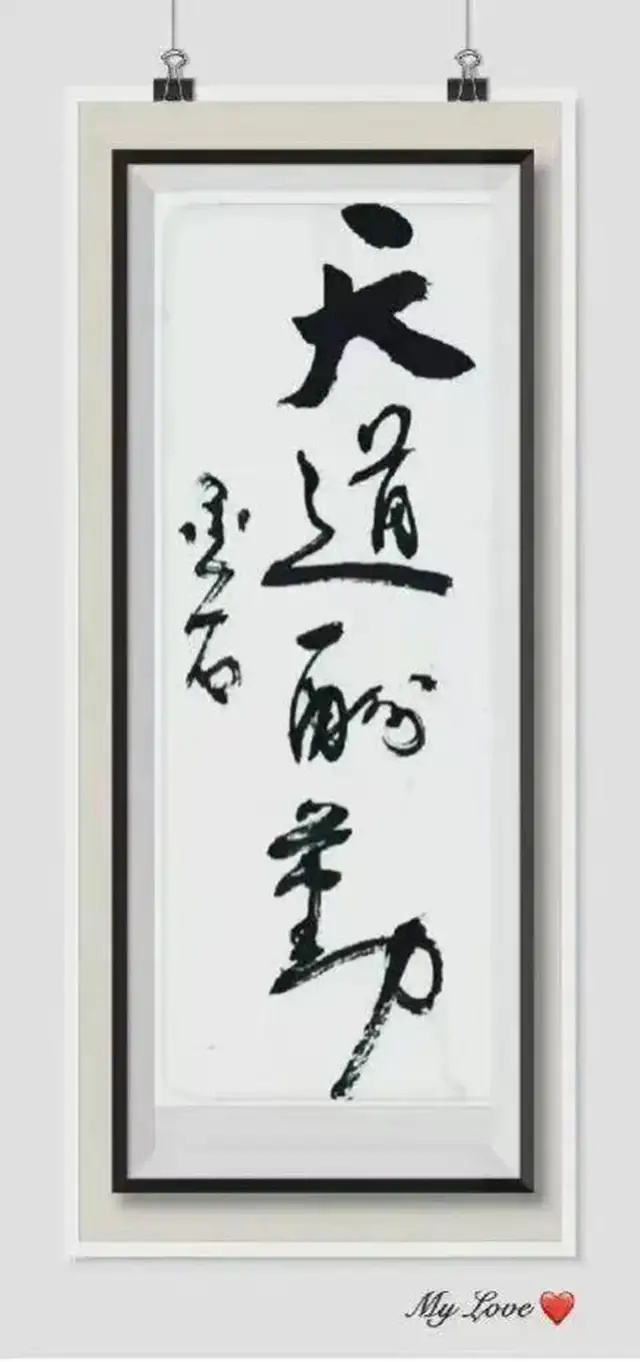 天道酬勤
墨石
My Love